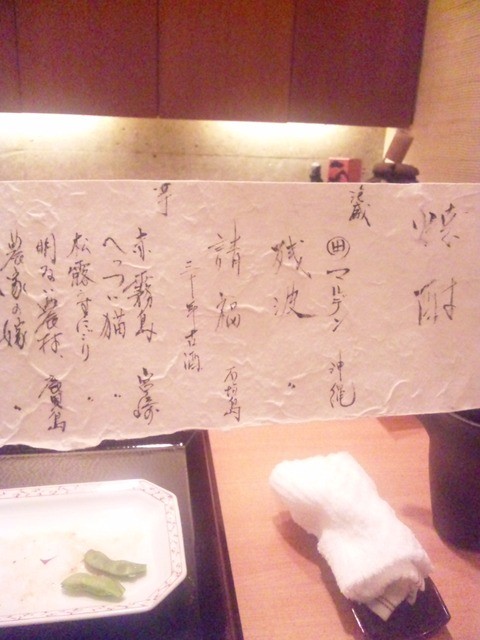 焼酎
泡盛
田 マルデン 沖縄
残波 〃
請福 石垣島
三十年古酒
芋
赤霧島 宮崎
へっつい猫 〃
松露うすにごり 〃
明るい農村 鹿児島
農家の嫁 〃